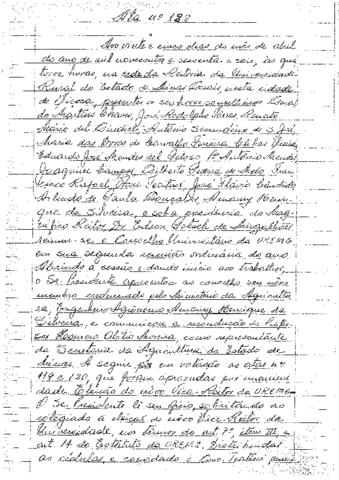 Ata nº 122
Aos vinte e cinco dias do mês de abril
do ano de mil novecentos e sessenta e seis, às qua
torze horas, na sede da Reitoria da Universidade
Rural do Estado de Minas Gerais, nesta cidade
de Viçosa, presentes os
do Martins Chaves, José Rodolpho Torres, Renato
Mario del Giudice, Antônio Secundino de S. José,
Maria das Dores de Carvalho Ferreira, Clibas Vieira,
Eduardo José Mendes del Peloso, Antônio Mendes,
Joaquim Campos, Dilberto de Melo, Fran
cisco Rafael, José Flávio Candido
de Paula Gonçalves, Amaury Henri
que da Silveira, e sob a presidência do Mag
nífico Reitor, Dr. Edson Potsch de Magalhães
reuniu-se o Conselho Universitário da UREMG
em sua segunda reunião ordinária do ano.
Abrindo a sessão e dando início aos trabalhos,
o Sr. Presidente apresentou ao conselho seu novo
membro credenciado pelo Ministério da Agricultu
ra, Engenheiro Agrônomo Amaury Henrique da
Silveira, e comunicou a recondução do Profes
sor Abílio como representante
da Secretaria da Agricultura do Estado de
Minas. A seguir, pôs em votação as atas nº
119 e 120, que foram aprovadas por unanimi
dade. Eleição do novo Vice-Reitor da UREMG
O Sr. Presidente solicitando ao
colegiado a eleição do novo Vice-Reitor da
Universidade, nos termos do art. 7º, item III, e
art. 14 do Estatuto da UREMG. Distribuidas
as cédulas, e convidado o Cons.